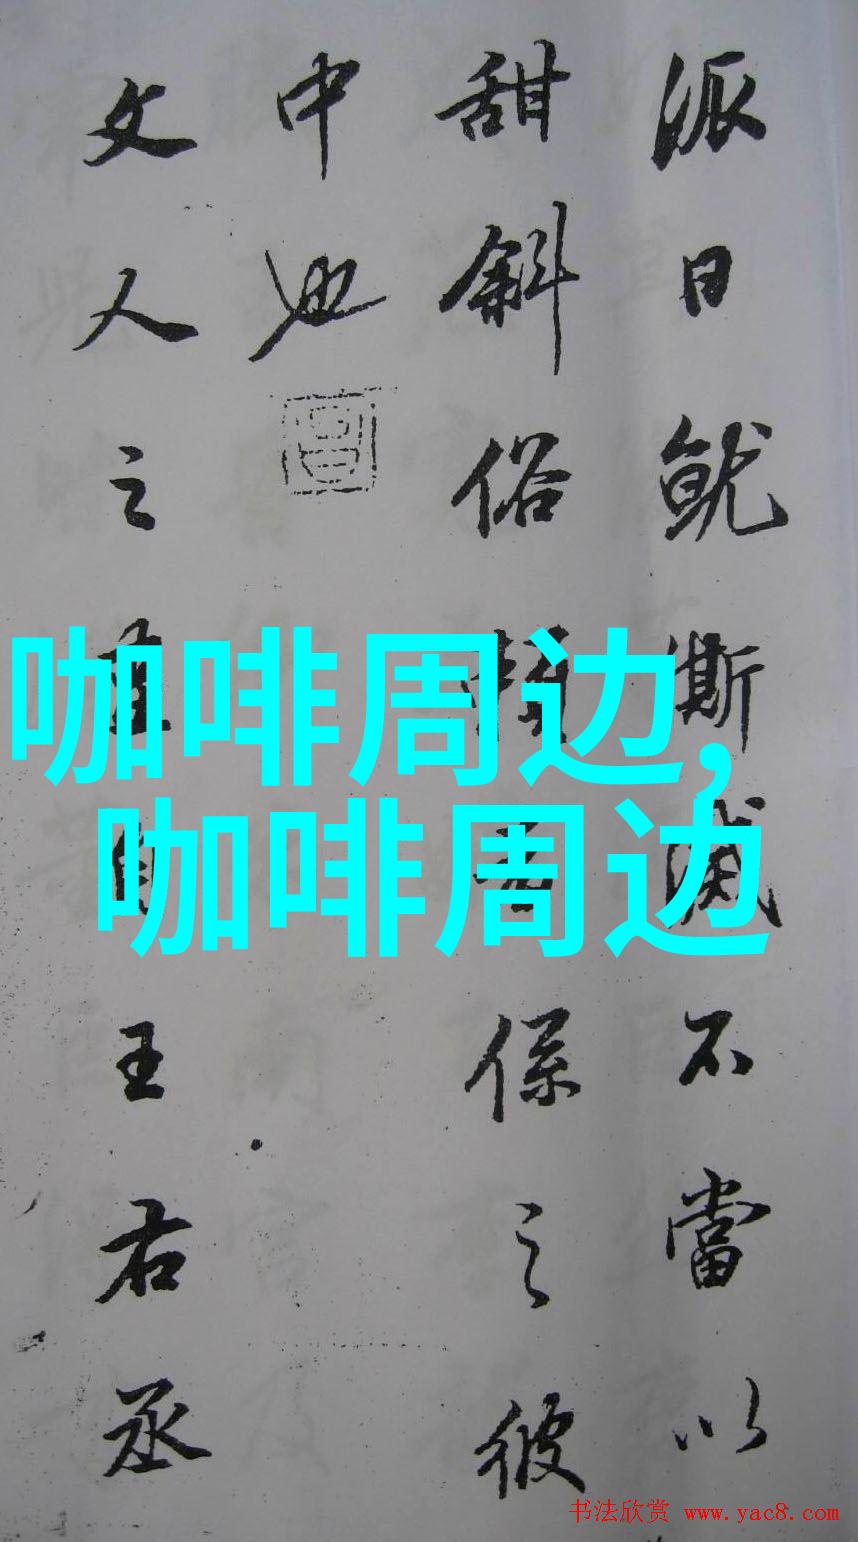 派日就澌滅不當以
甜斜俗係之彼
中也
文人之自王右丞
咖啡周边,
咖啡周边
书法欣赏 www.yac8.com